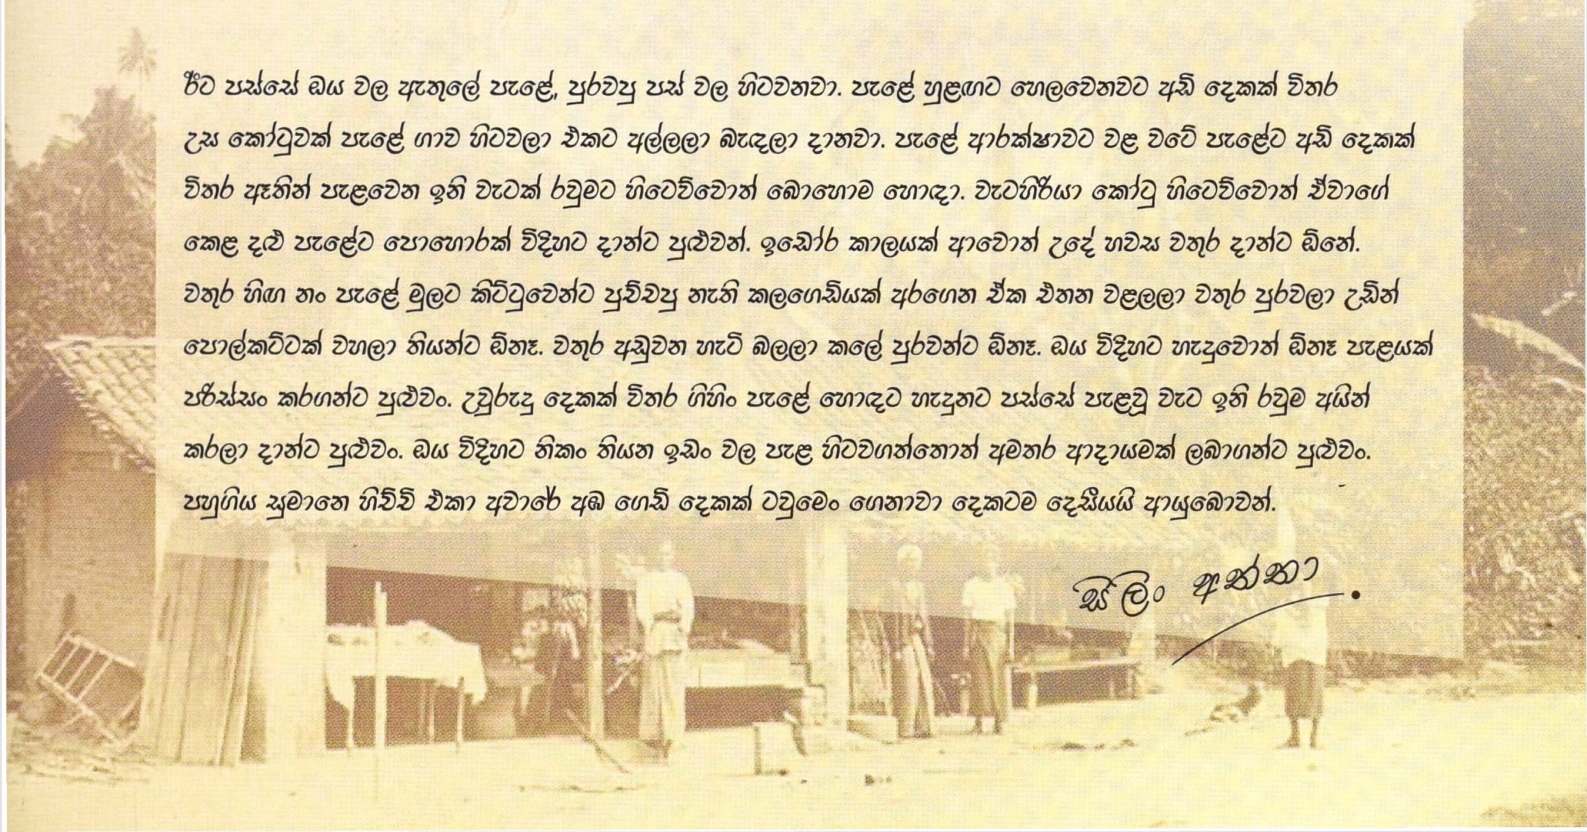 ඊට පස්සේ ඔය වල ඇතුලේ පැළේ, පුරවපු පස් වල හිටවනවා. පැළේ හුළඟට හෙලවෙනවට අඩි දෙකක් විතර
උස කෝටුවක් පැළේ ගාව හිටවලා එකට අල්ලලා බැඳලා දානවා. පැළේ ආරක්ෂාවට වළ වටේ පැළේට අඩි දෙකක්
විතර ඈතින් පැළවෙන ඉනි වැටක් රවුමට හිටෙව්වොත් බොහොම හොඳා. වැටහිරියා කෝටු හිටෙව්වොත් ඒවාගේ
කෙළ දළු පැළේට පොහොරක් විදිහට දාන්ට පුළුවන්. ඉඩෝර කාලයක් ආවොත් උදේ හවස වතුර දාන්ට ඕනේ.
වතුර හිඟ නං පැළේ මුලට කිට්ටුවෙන්ට පුච්චපු නැති කලගෙඩියක් අරගෙන ඒක එතන වළලලා වතුර පුරවලා උඩින්
පොල්කට්ටක් වහලා තියන්ට ඕනෑ. වතුර අඩුවන හැටි බලලා කලේ පුරවන්ට ඕනෑ. ඔය විදිහට හැදුවොත් ඕනෑ පැළයක්
පරිස්සං කරගන්ට පුළුවං. උවුරුදු දෙකක් විතර ගිහිං පැළේ හොඳට හැදුනට පස්සේ පැළවූ වැට ඉනි රවුම අයින්
කරලා දාන්ට පුළුවං. ඔය විදිහට නිකං තියන ඉඩං වල පැළ හිටවගත්තොත් අමතර ආදායමක් ලබාගන්ට පුළුවං.
පහුගිය සුමානෙ හිච්චි එකා අවාරේ අඹ ගෙඩි දෙකක් ටවුමෙං ගෙනාවා දෙකටම දෙසීයයි ආයුබොවන්.
සිලිං අත්තා